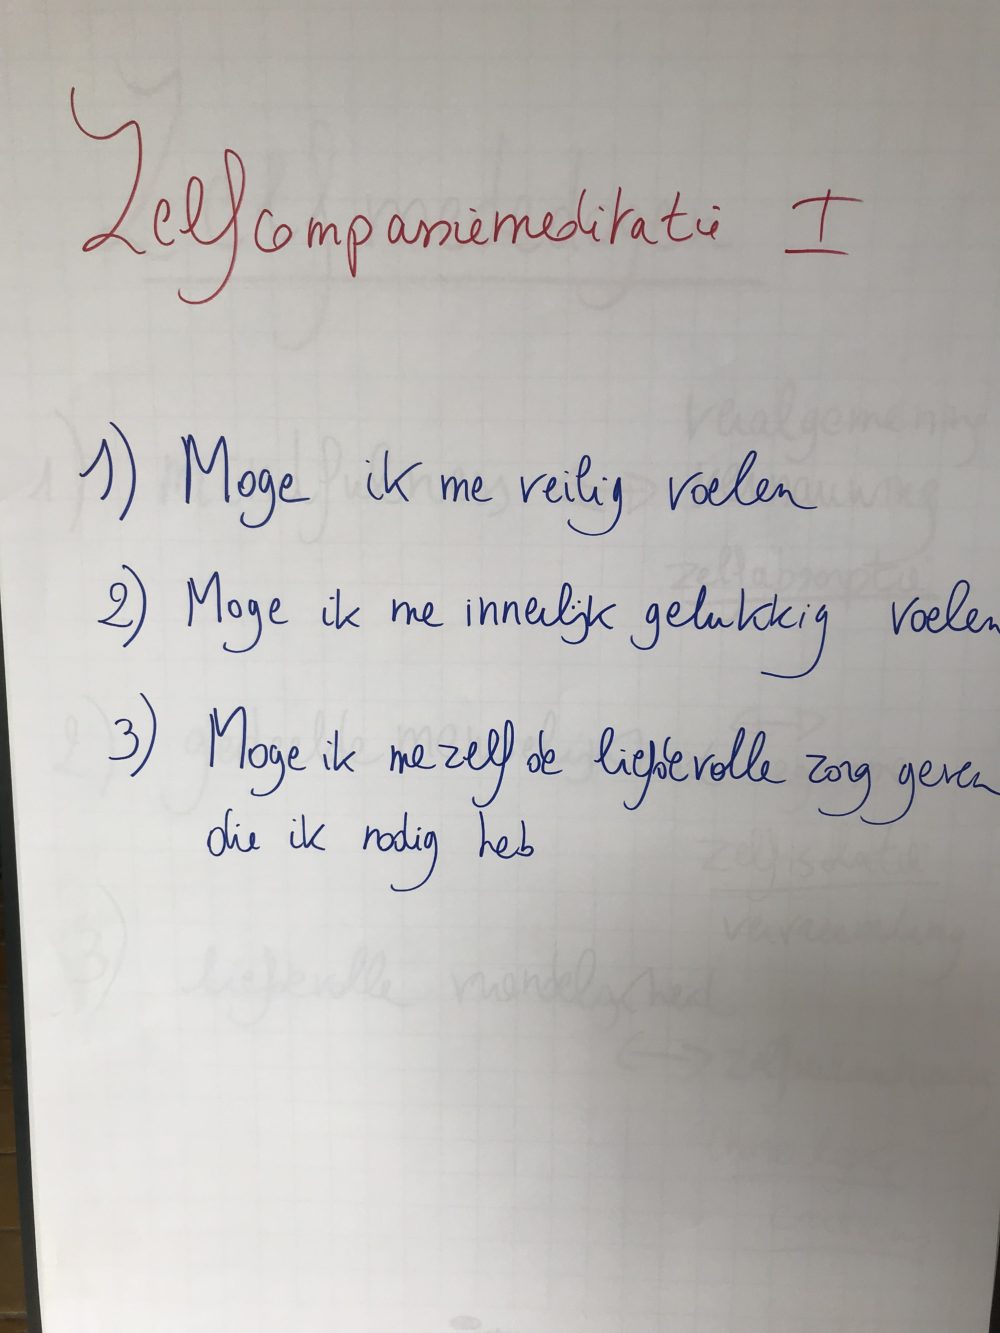 Zelfcompassiemeditatie I
1) Moge ik me veilig voelen
2) Moge ik me innerlijk gelukkig voelen
3) Moge ik mezelf de liefdevolle zorg geven
die ik nodig heb